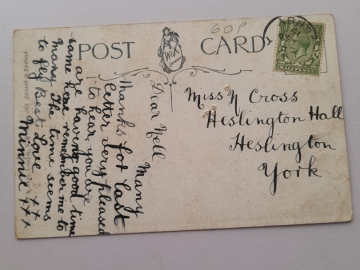 POST CARD
60P
Dear Nell Many
thanks for last
letter very pleased
to hear you are
are having good time
same here remember me to
many the time seems
to fly Best Love
Minnie xxx
Miss N Cross
Heslington Hall
Heslington
York